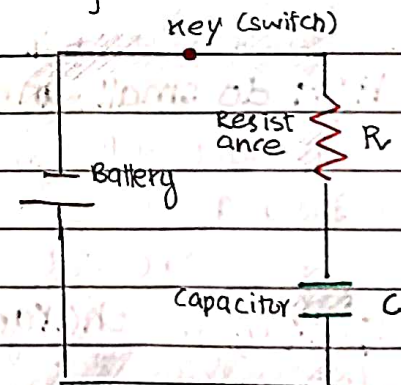 Key (switch)
Resist
ance
R
Battery
Capacitor
C